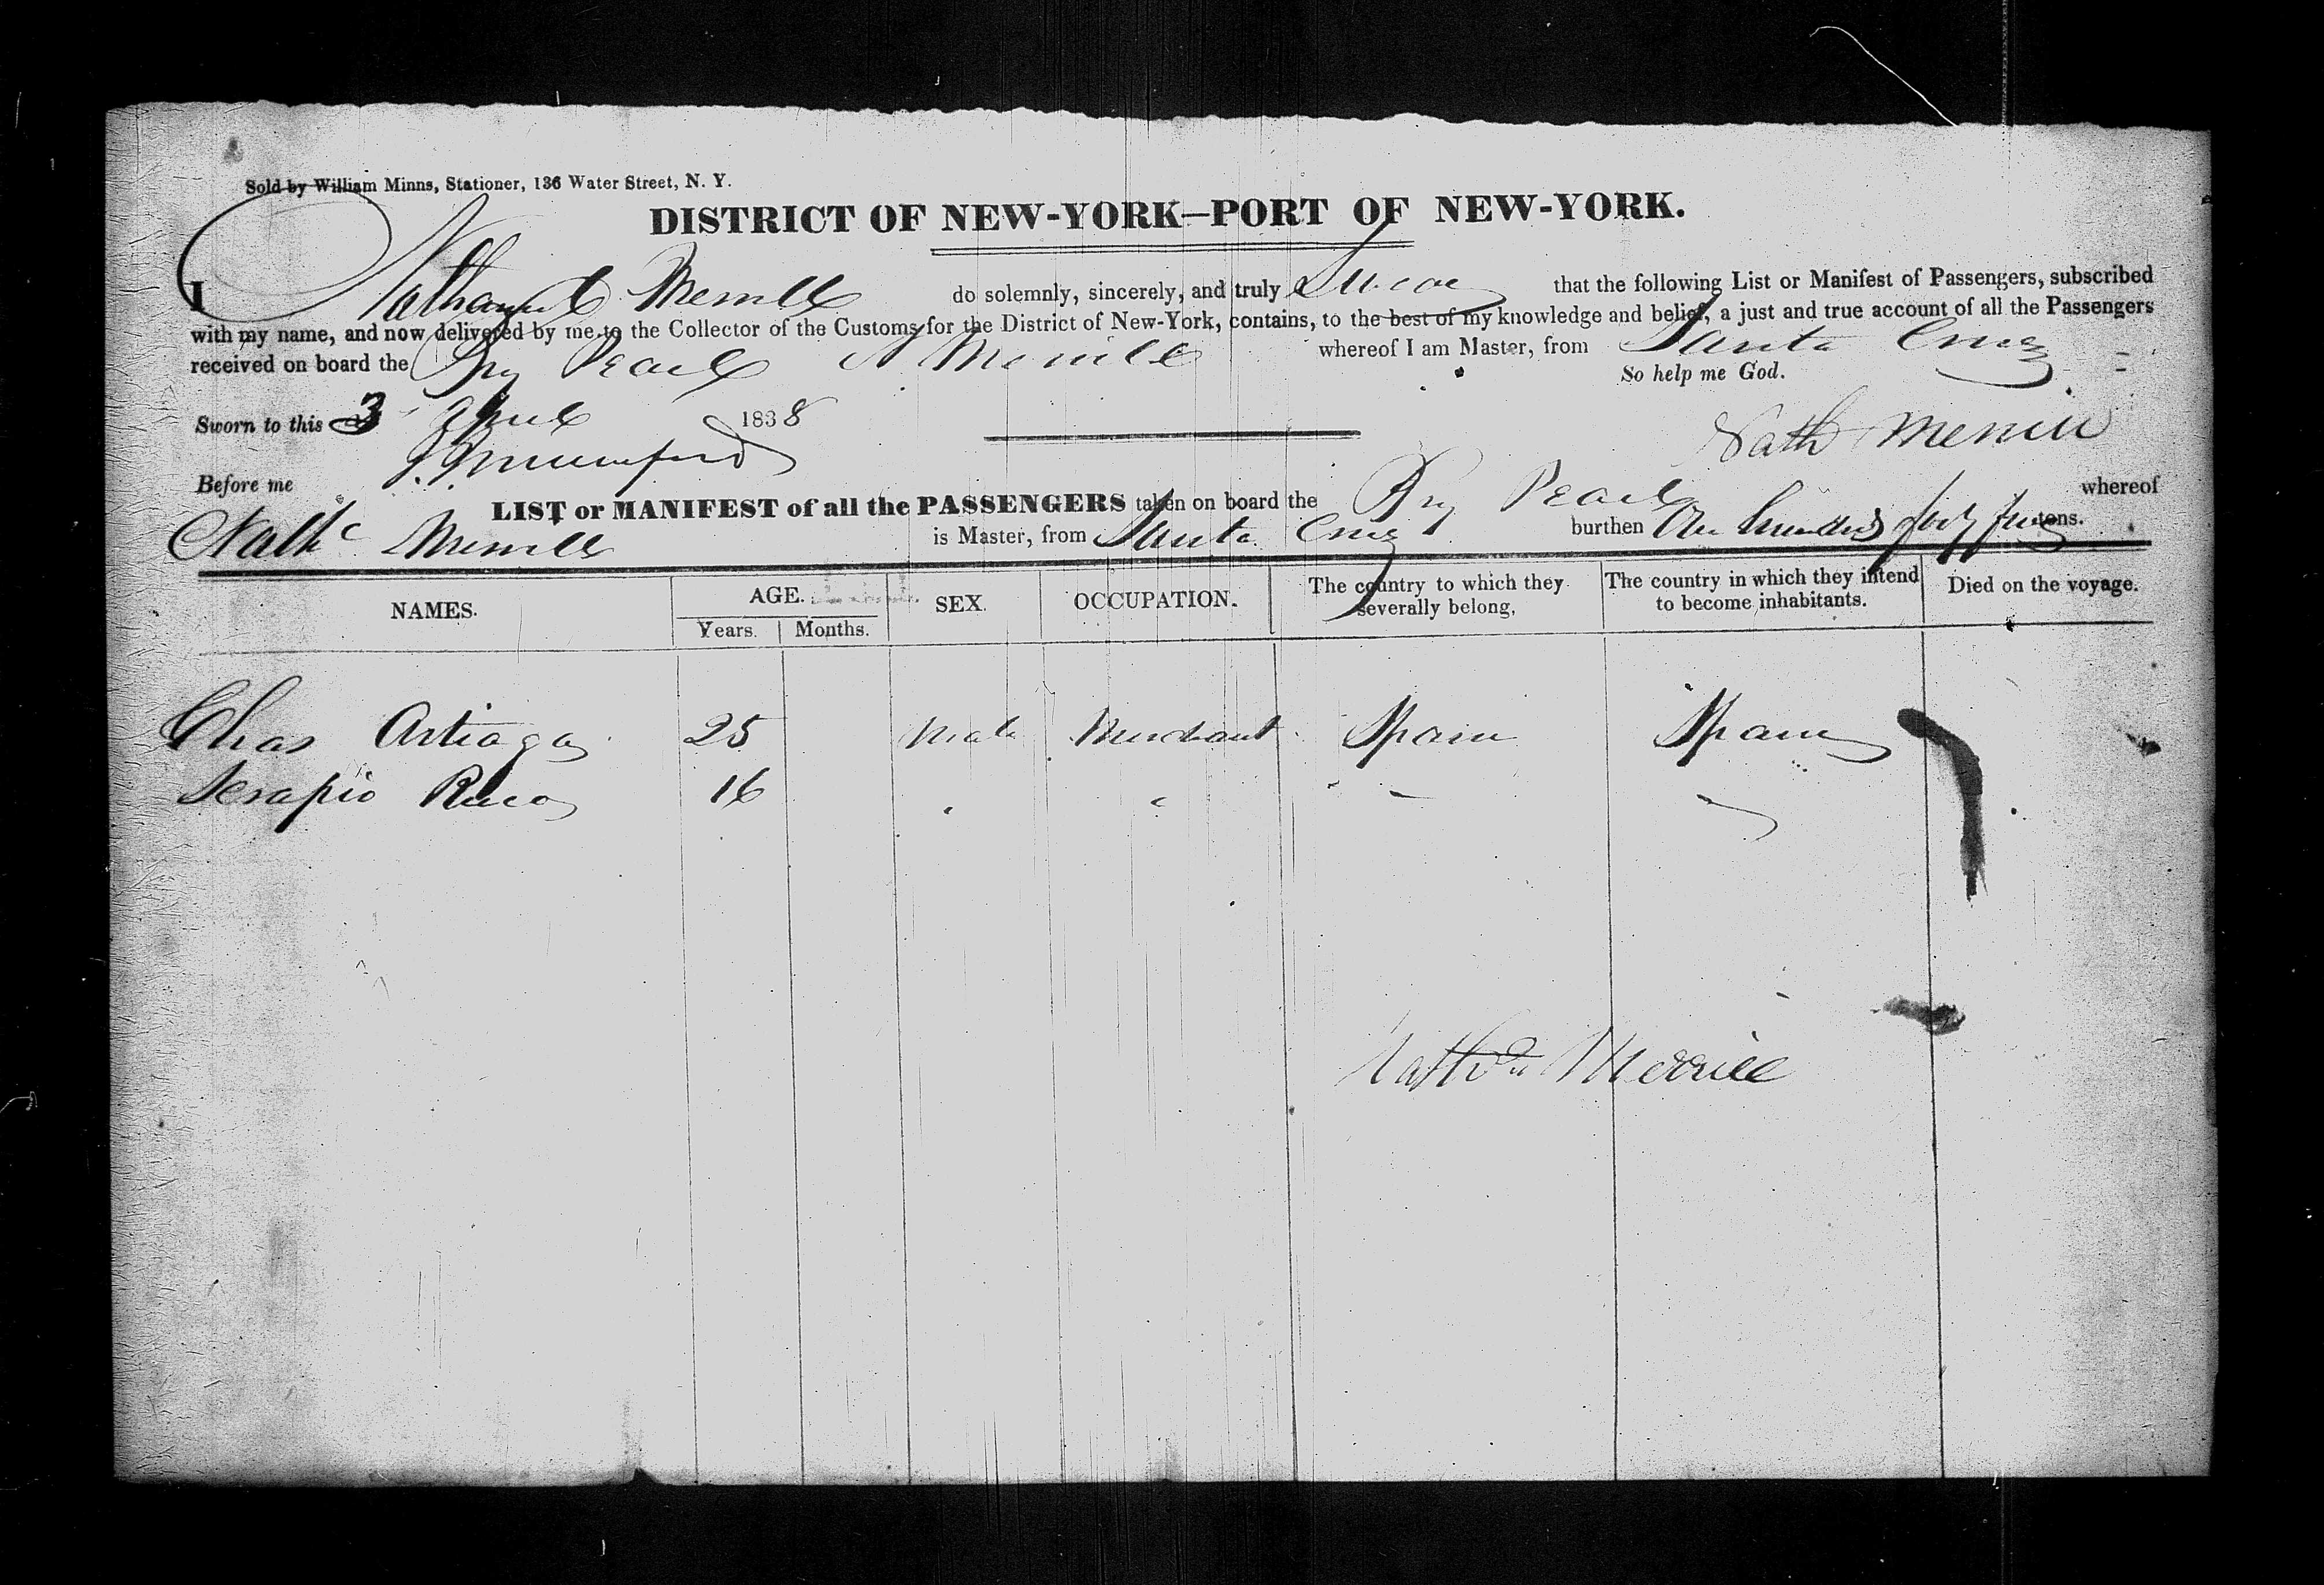 Sold by William Minns, Stationer, 136 Water Street, N. Y.
DISTRICT OF NEW-YORK—PORT OF NEW-YORK.
I Nathaniel Merrill do solemnly, sincerely, and truly Swear that the following List or Manifest of Passengers, subscribed
with my name, and now delivered by me to the Collector of the Customs for the District of New-York, contains, to the best of my knowledge and belief, a just and true account of all the Passengers
received on board the Brig Pearl N Merrill whereof I am Master, from Santa Cruz
So help me God.
Sworn to this 3 April 1838
Nath Merrill
Before me
LIST or MANIFEST of all the PASSENGERS taken on board the Brig Pearl whereof
Nath Merrill is Master, from Santa Cruz burthen One hundred forty tons.
NAMES. AGE. SEX. OCCUPATION. The country to which they severally belong, The country in which they intend to become inhabitants. Died on the voyage.
Years. Months.
Chas Artiaga 25 Male Merchant Spain Spain
Serapio 16 " " " "
Merrill